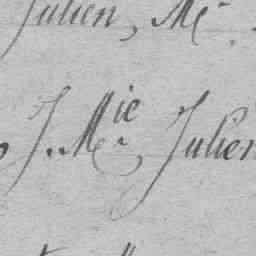 Julien, Me
J. Mie Julien